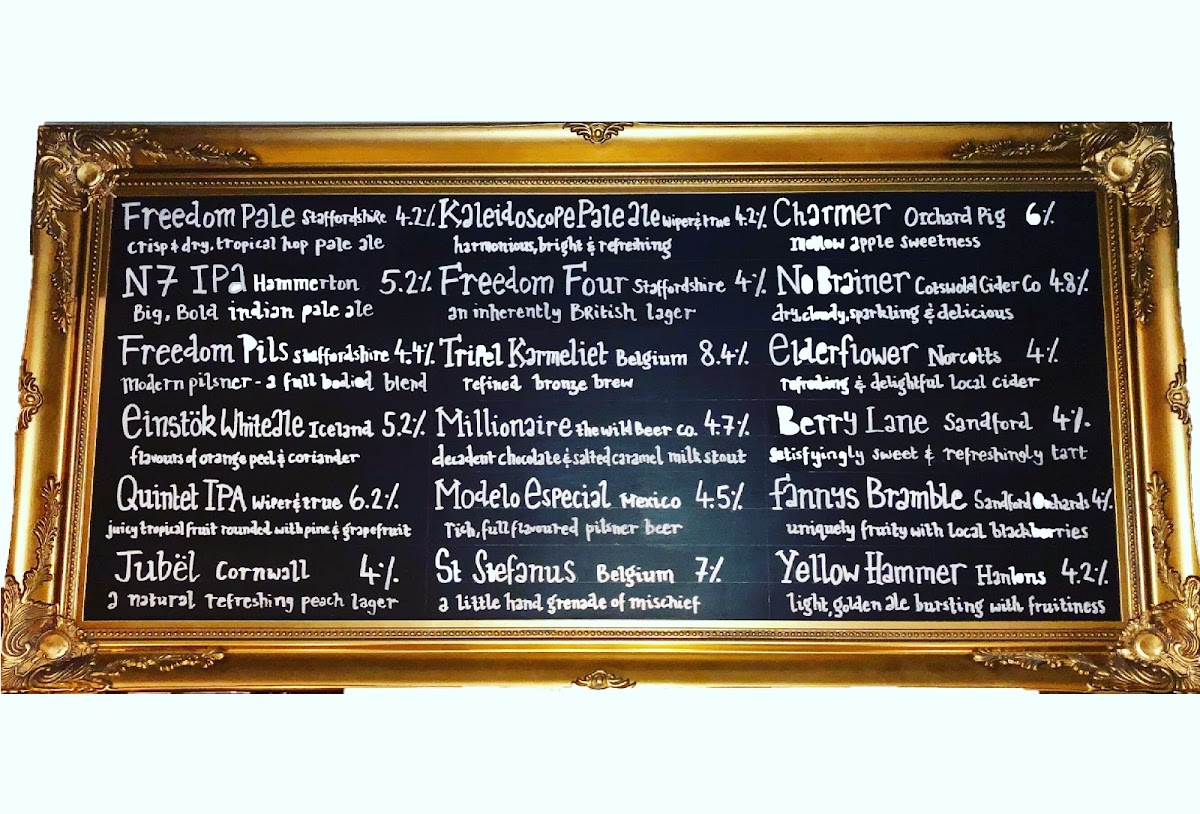 Freedom Pale Staffordshire 4.2%
crisp & dry, tropical hop pale ale
N7 IPA Hammerton 5.2%
Big, Bold indian pale ale
Freedom Pils Staffordshire 4.4%
Modern pilsner - a full bodied blend
Einstök White ale Iceland 5.2%
flavours of orange peel & coriander
Quintet IPA Wiper & true 6.2%
juicy tropical fruit rounded with pine & grapefruit
Jubël Cornwall 4%
a natural refreshing peach lager
Kaleidoscope Pale ale wiper & true 4.2%
harmonious, bright & refreshing
Freedom Four Staffordshire 4%
an inherently British lager
Tripel Karmeliet Belgium 8.4%
refined bronze brew
Millionaire The Wild Beer Co. 4.7%
decadent chocolate & salted caramel milk stout
Modelo Especial Mexico 4.5%
rich, full flavoured pilsner beer
St Stefanus Belgium 7%
a little hand grenade of mischief
Charmer Orchard Pig 6%
mellow apple sweetness
No Brainer Cotswold Cider Co 4.8%
dry, cloudy, sparkling & delicious
Elderflower Norcotts 4%
refreshing & delightful local cider
Berry Lane Sandford 4%
satisfyingly sweet & refreshingly tart
Fannys Bramble Sandford Orchards 4%
uniquely fruity with local blackberries
Yellow Hammer Hanlons 4.2%
light, golden ale bursting with fruitiness